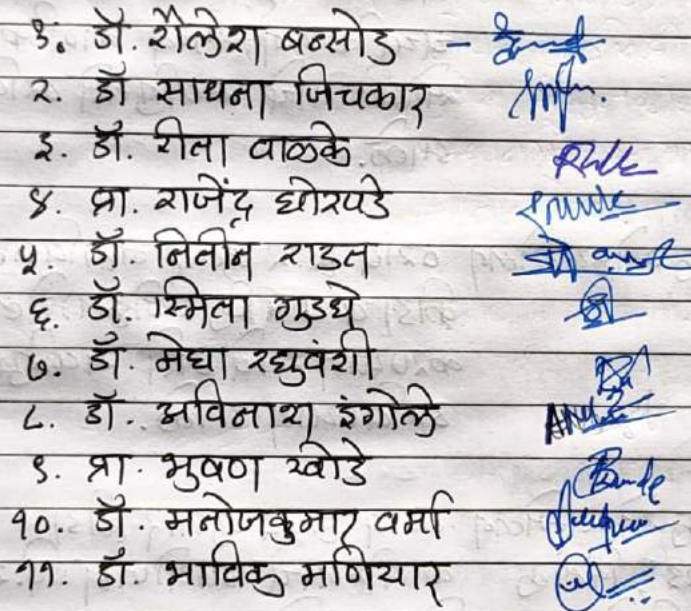 १. डॉ. शैलेश बन्सोड -
२. डॉ साधना जिचकार
३. डॉ. रीता वाळके
४. प्रा. राजेंद्र घोरपडे
५. डॉ. नितीन राउत
६. डॉ. स्मिता गुडधे
७. डॉ. मेघा रघुवंशी
८. डॉ. अविनाश इंगोले
९. प्रा. भुषण खोडे
१०. डॉ. मनोजकुमार वर्मा
११. डॉ. भाविक मणियार